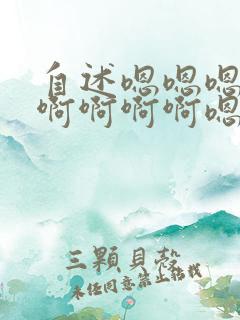 自述嗯嗯嗯
啊啊啊啊嗯
三顆貝殼
未经同意禁止转载